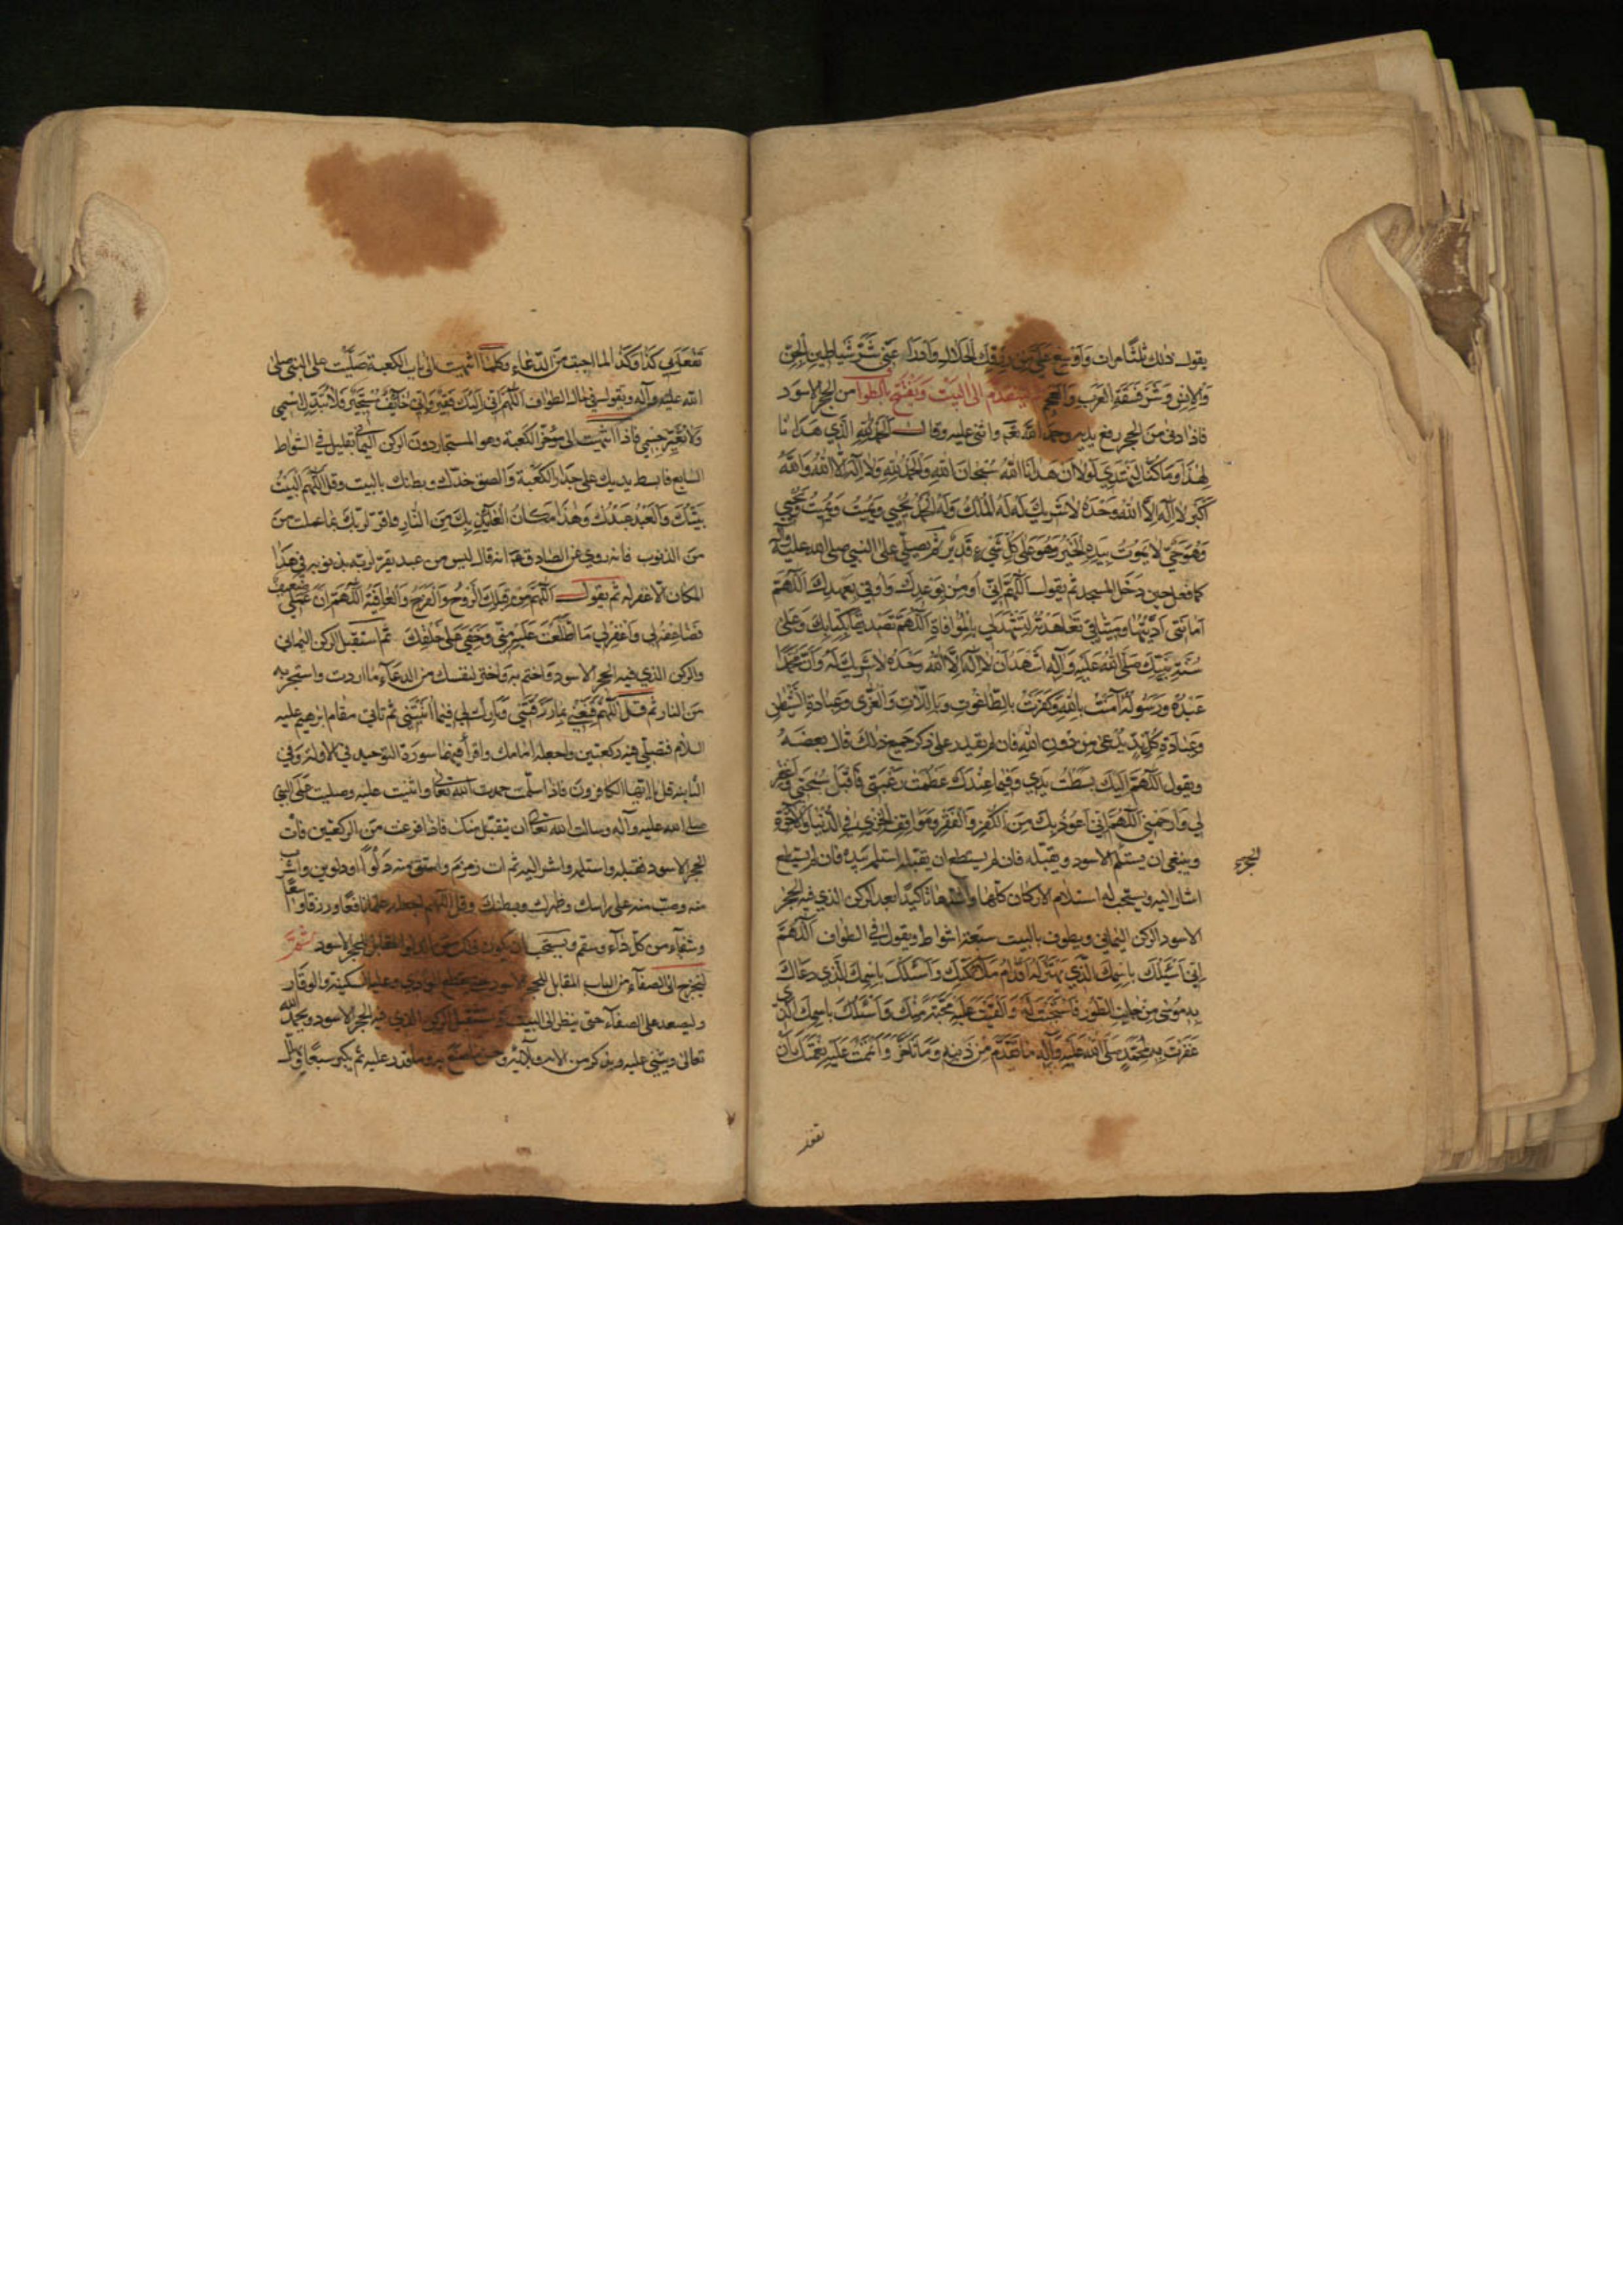 يقول ذلك ثلث مرات وَاَوْسِع عَلَيَّ مِنْ رِزْقِكَ الْحَلَالِ وَادْرَأ عَنّي شَرَّ شَيَاطِينِ الْجِنِّ
وَالْاِنْسِ وَشَرَّ فَسَقَةِ الْعَرَبِ وَالْعَجَمِ يتقدّم الى البَيْت وَيَفْتَتِح بالطواف من الحجر الاسود
فاذا دنى من الحجر رفع يديه وحمد الله تعم واثنى عليه وقال الْحَمْدُ لِلّٰهِ الَّذي هَدَانَا
لِهٰذَا وَمَا كُنَّا لِنَهْتَدِيَ لَوْلَا اَنْ هَدَانَا اللّٰهُ سُبْحَانَ اللّٰهِ وَالْحَمْدُ لِلّٰهِ وَلَا اِلٰهَ اِلَّا اللّٰهُ وَاللّٰهُ
اَكْبَرُ لَا اِلٰهَ اِلَّا اللّٰهُ وَحْدَهُ لَا شَرِيكَ لَهُ لَهُ الْمُلْكُ وَلَهُ الْحَمْدُ يُحْيِي وَيُمِيتُ وَيُمِيتُ وَيُحْيِي
وَهُوَ حَيٌّ لَا يَمُوتُ بِيَدِهِ الْخَيْرُ وَهُوَ عَلى كُلِّ شَيْءٍ قَدِيرٌ ثم يصلّي على النبي صلى الله عليه وآله
كما فعل حين دَخَل المسجد ثم يقول اَللّٰهُمَّ اِنّي اُومِنُ بِوَعْدِكَ وَاُوفي بِعَهْدِكَ اَللّٰهُمَّ
اَمَانَتي اَدَّيْتُهَا وَمِيثَاقي تَعَاهَدْتُهُ لِتَشْهَدَ لي بِالْمُوَافَاةِ اَللّٰهُمَّ تَصْدِيقًا بِكِتَابِكَ وَعَلى
سُنَّةِ نَبِيِّكَ صَلَّى اللّٰهُ عَلَيْهِ وَآلِهِ اَشْهَدُ اَنْ لَا اِلٰهَ اِلَّا اللّٰهُ وَحْدَهُ لَا شَرِيكَ لَهُ وَاَنَّ مُحَمَّدًا
عَبْدُهُ وَرَسُولُهُ آمَنْتُ بِاللّٰهِ وَكَفَرْتُ بِالطَّاغُوتِ وَبِاللَّاتِ وَالْعُزّى وَعِبَادَةِ الشَّيْطٰنِ
وَعِبَادَةِ كُلِّ نِدٍّ يُدْعى مِنْ دُونِ اللّٰهِ فان لم يقدر على ذكر جميع ذلك قال بعضه
ويقول اَللّٰهُمَّ اِلَيْكَ بَسَطْتُ يَدي وَفيمَا عِنْدَكَ عَظُمَتْ رَغْبَتي فَاقْبَلْ سُبْحَتي وَاغْفِرْ
لي وَارْحَمْني اَللّٰهُمَّ اِنّي اَعُوذُ بِكَ مِنَ الْكُفْرِ وَالْفَقْرِ وَمَوَاقِفِ الْخِزْيِ فِي الدُّنْيَا وَالْآخِرَةِ
وينبغي ان يستلم الاسود ويقبّله فان لم يستطع ان يقبله استلمه بيده فان لم يستطع
الحجر
اشار اليه ويستحب له استلام الاركان كلها واشدها تاكيدًا بعد الركن الذي فيه الحجر
الاسود الركن اليماني ويطوف بالبيت سبعة اشواط ويقول في الطواف اَللّٰهُمَّ
اِنّي اَسْئَلُكَ بِاسْمِكَ الَّذي يَهْتَزُّ لَهُ اَقْدَامُ مَلٰئِكَتِكَ وَاَسْئَلُكَ بِاسْمِكَ الَّذي دَعَاكَ
بِهِ مُوسى مِنْ جَانِبِ الطُّورِ فَاسْتَجَبْتَ لَهُ وَاَلْقَيْتَ عَلَيْهِ مَحَبَّةً مِنْكَ وَاَسْئَلُكَ بِاسْمِكَ الَّذي
غَفَرْتَ بِهِ لِمُحَمَّدٍ صَلَّى اللّٰهُ عَلَيْهِ وَآلِهِ مَا تَقَدَّمَ مِنْ ذَنْبِهِ وَمَا تَاَخَّرَ وَاَتْمَمْتَ عَلَيْهِ نِعْمَتَكَ اَنْ
تَفْعَلَ بي كَذَا وَكَذَا لما احببت مِنَ الدّعاء وكلما انتهيت الى باب الكعبة صَلَّيْت على النبي صلى
الله عليه وآله وتقول في حال الطواف اَللّٰهُمَّ اِنّي اِلَيْكَ فَقِيرٌ وَاِنّي خَائِفٌ مُسْتَجِيرٌ فَلَا تُبَدِّلِ اسْمي
وَلَا تُغَيِّرْ جِسْمي فاذا انتهيت الى مؤخّر الكعبة وهو المستجار دون الركن اليماني بقليل في الشواط
السابع فابسط يديك على جدار الكعبة والصق خدّك وبطنك بالبيت وقل اَللّٰهُمَّ الْبَيْتُ
بَيْتُكَ وَالْعَبْدُ عَبْدُكَ وَهٰذَا مَكَانُ الْعَائِذِ بِكَ مِنَ النَّارِ واقرّ لربك بما عملت من
مِنَ الذنوب فانه روي عن الصادق عم انه قال ليس من عبد يقرّ لربه بذنوبه في هذا
المكان الا غفر له ثم يقول اَللّٰهُمَّ مِنْ قِبَلِكَ الرَّوْحُ وَالْفَرَجُ وَالْعَافِيَةُ اَللّٰهُمَّ اِنَّ عَمَلي ضَعيفٌ
فَضَاعِفْهُ لي وَاغْفِرْ لي مَا اطَّلَعْتَ عَلَيْهِ مِنّي وَخَفِيَ عَلى خَلْقِكَ ثم استقبل الركن اليماني
والركن الذي فيه الحجر الاسود واختم به واختر لنفسك من الدعاء ما اردت واستجر به
من النار ثم قل اَللّٰهُمَّ قَنِّعْني بِمَا رَزَقْتَني وَبَارِكْ لي فيمَا آتَيْتَني ثم تأتي مقام ابرهيم عليه
السلام فتصلّي فيه ركعتين واجعله امامك واقرأ فيهما سورة التوحيد في الاولة وفي
الثانية قل يا ايها الكافرون فاذا سلّمت حمدت الله تعالى واثنيت عليه وصليت على النبي
صلى الله عليه وآله وسالت الله تعالى ان يتقبّل منك فاذا فرغت من الركعتين فأت
الحجر الاسود فقبله واستلمه واشر اليه ثم ائت زمزم واستق منه دَلْوًا او دلوين واشرب
منه وصبّ منه على راسك وظهرك وبطنك وقل اللهم اجعله علمًا نافعًا ورزقًا واسعًا
وشفآء من كل داء وسقم ويستحب ان يكون ذلك من الدلو المقابل للحجر الاسود ثمّ
ليخرج الى الصفآء من الباب المقابل للحجر الاسود حتى يقطع الوادي وعليه السكينة والوقار
وليصعد على الصفآء حتى ينظر الى البيت ويستقبل الركن الذي فيه الحجر الاسود ويحمد الله
تعالى ويثني عليه ويذكر من الائه وبلائه وحسن ما صنع به ما قدر عليه ثم يكبر سبعًا